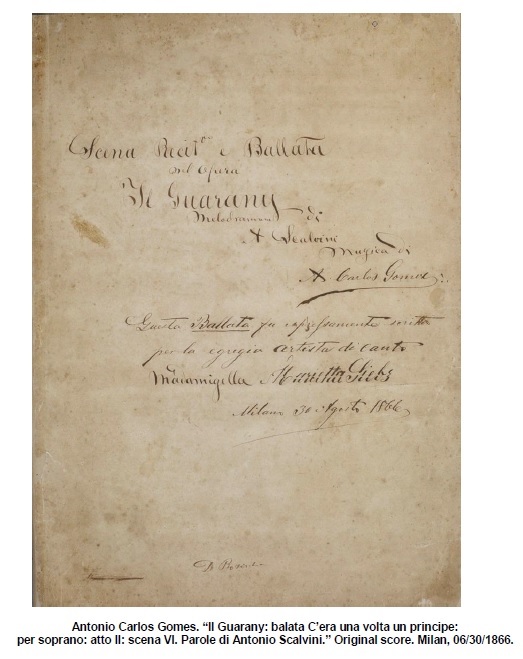 Scena Recit.º e Ballata
nel Opera
Il Guarany
Melodramma di
A Scalvini
Musica di
A Carlos Gomes
Questa Ballata fu espressamente scritta
per la egregia artista de canto
Madamigella Marietta
Milano 30 Agosto 1866
Antonio Carlos Gomes. “Il Guarany: balata C’era una volta un principe:
per soprano: atto II: scena VI. Parole di Antonio Scalvini.” Original score. Milan, 06/30/1866.